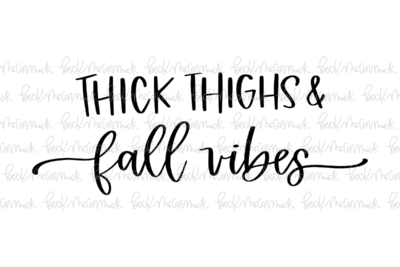 THICK THIGHS &
fall vibes